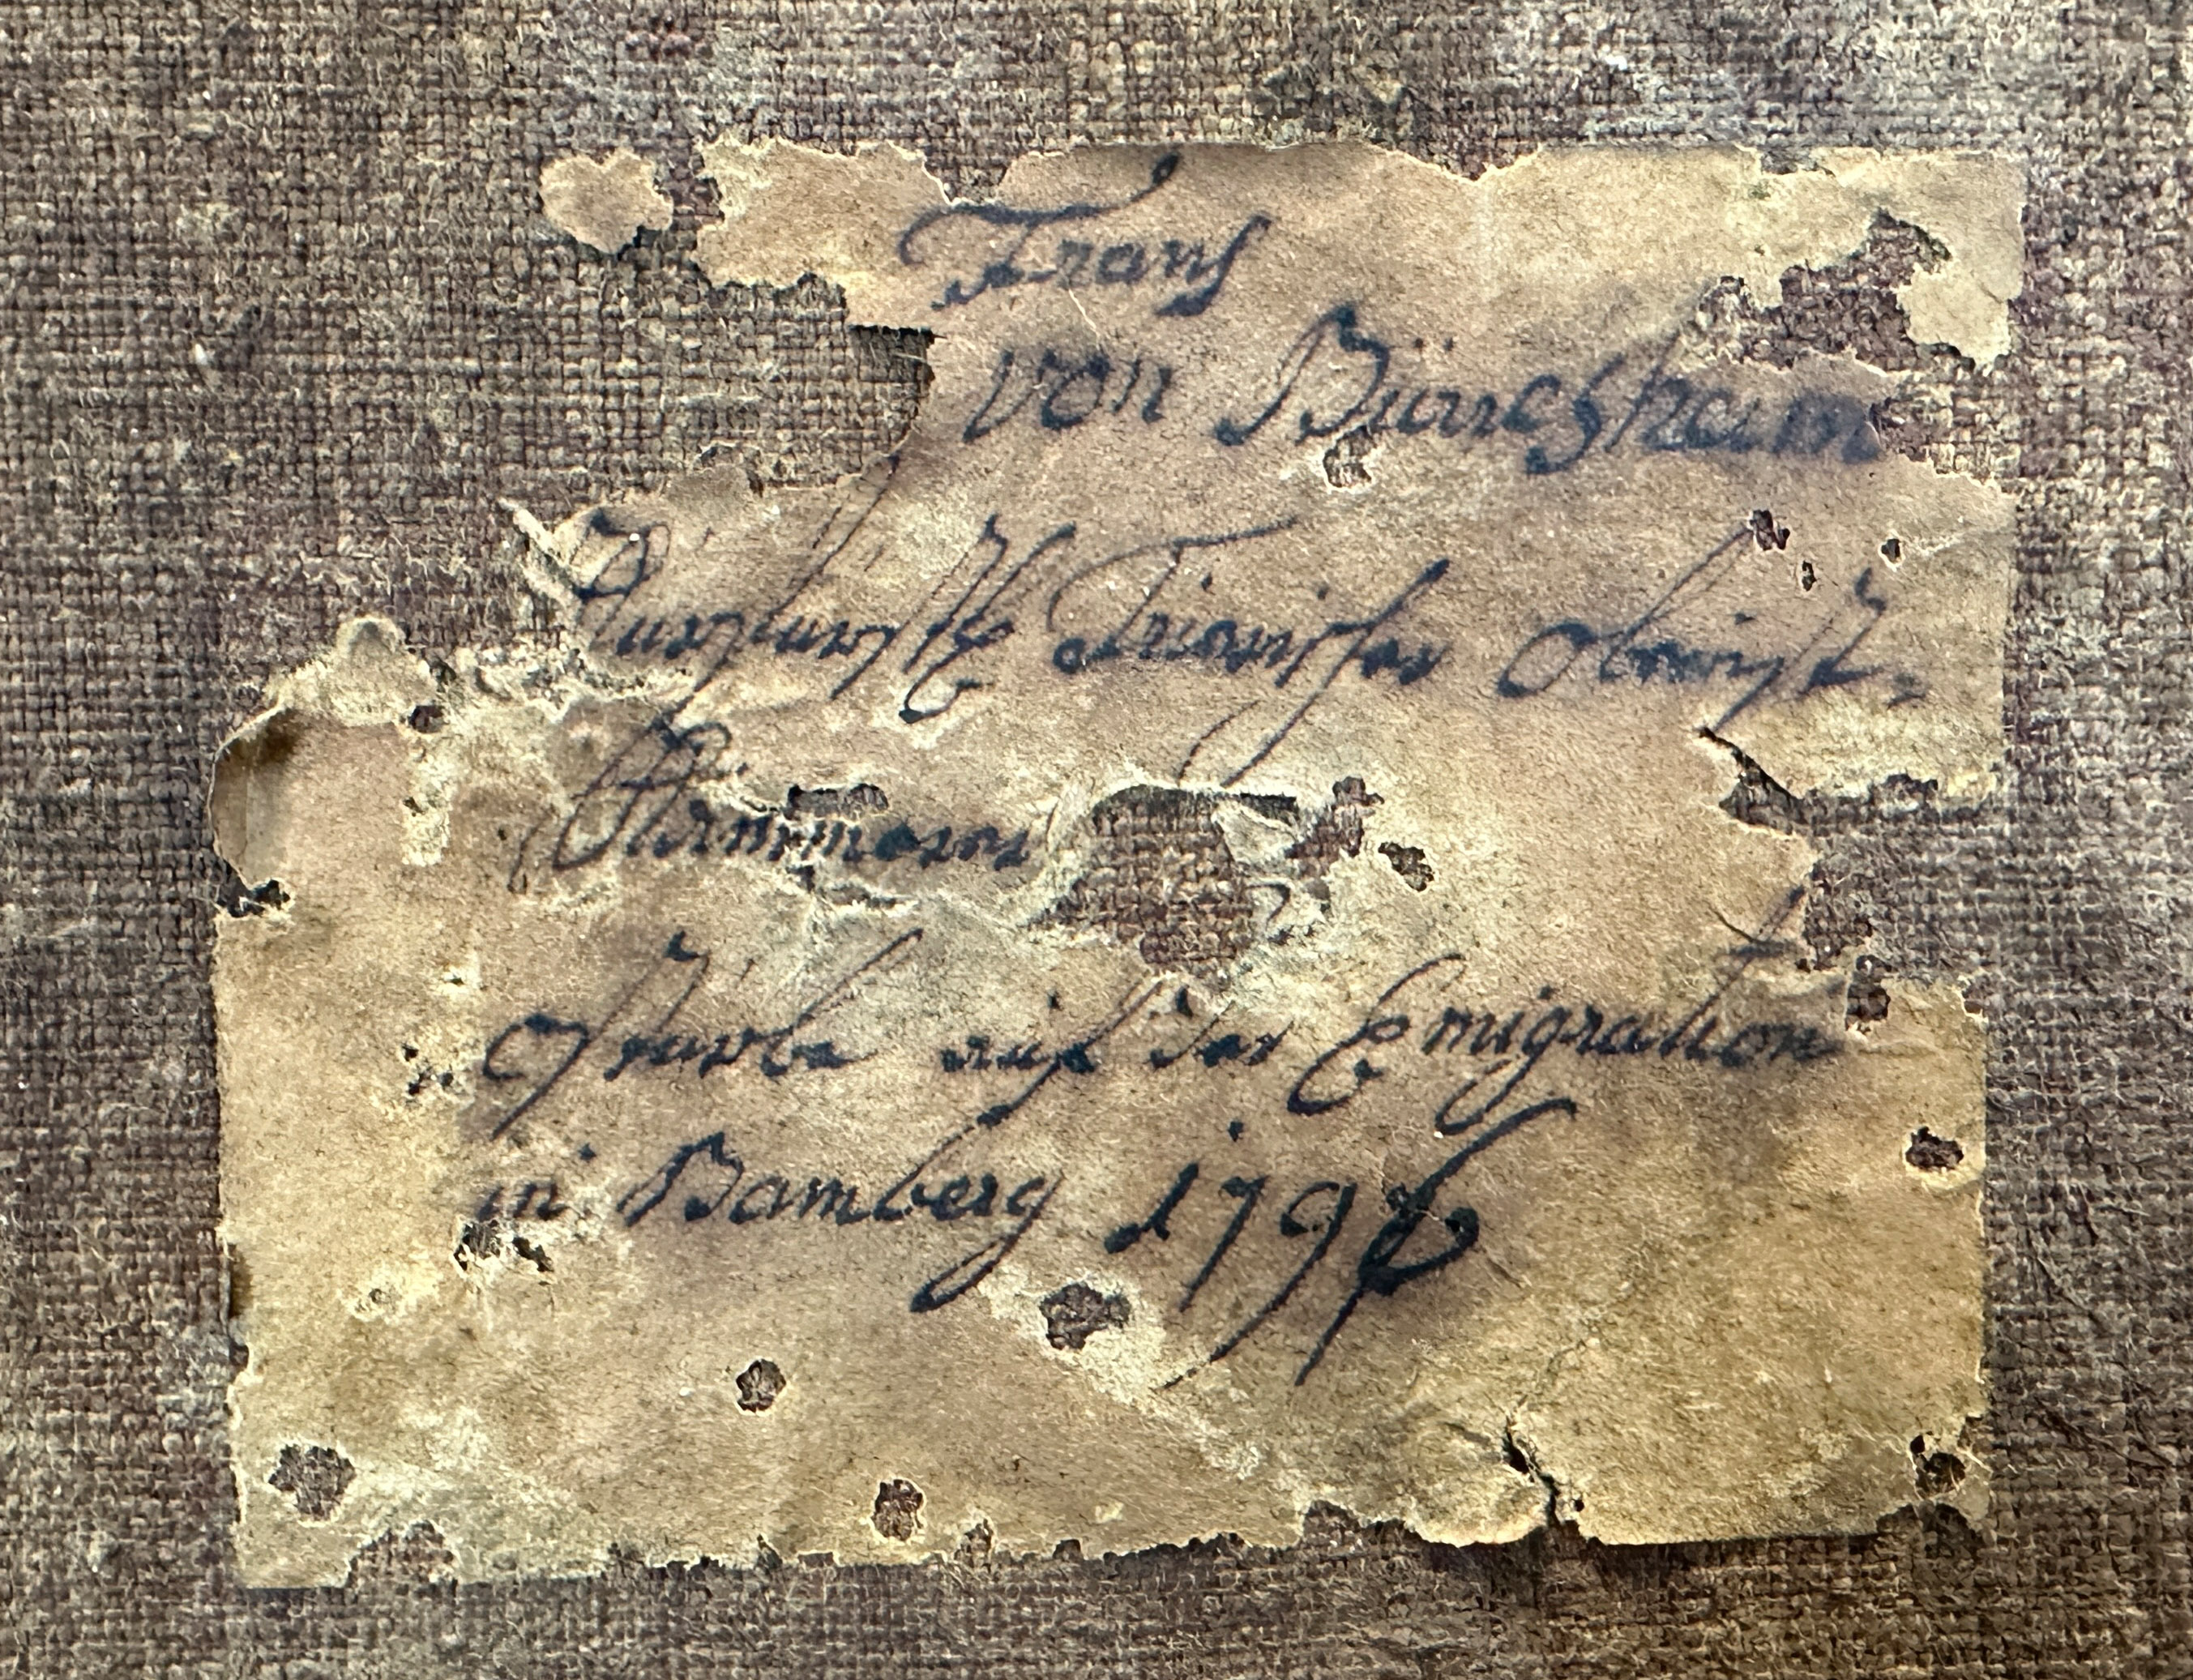 Franz
von Bürresheim
Kurfürstl Trierischer Obrist,
Kämmerer
starbe auf der Emigration
in Bamberg